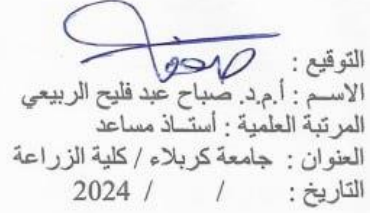 التوقيع :
الاسم : أ.م.د. صباح عبد فليح الربيعي
المرتبة العلمية : أستاذ مساعد
العنوان : جامعة كربلاء / كلية الزراعة
التاريخ : / / 2024